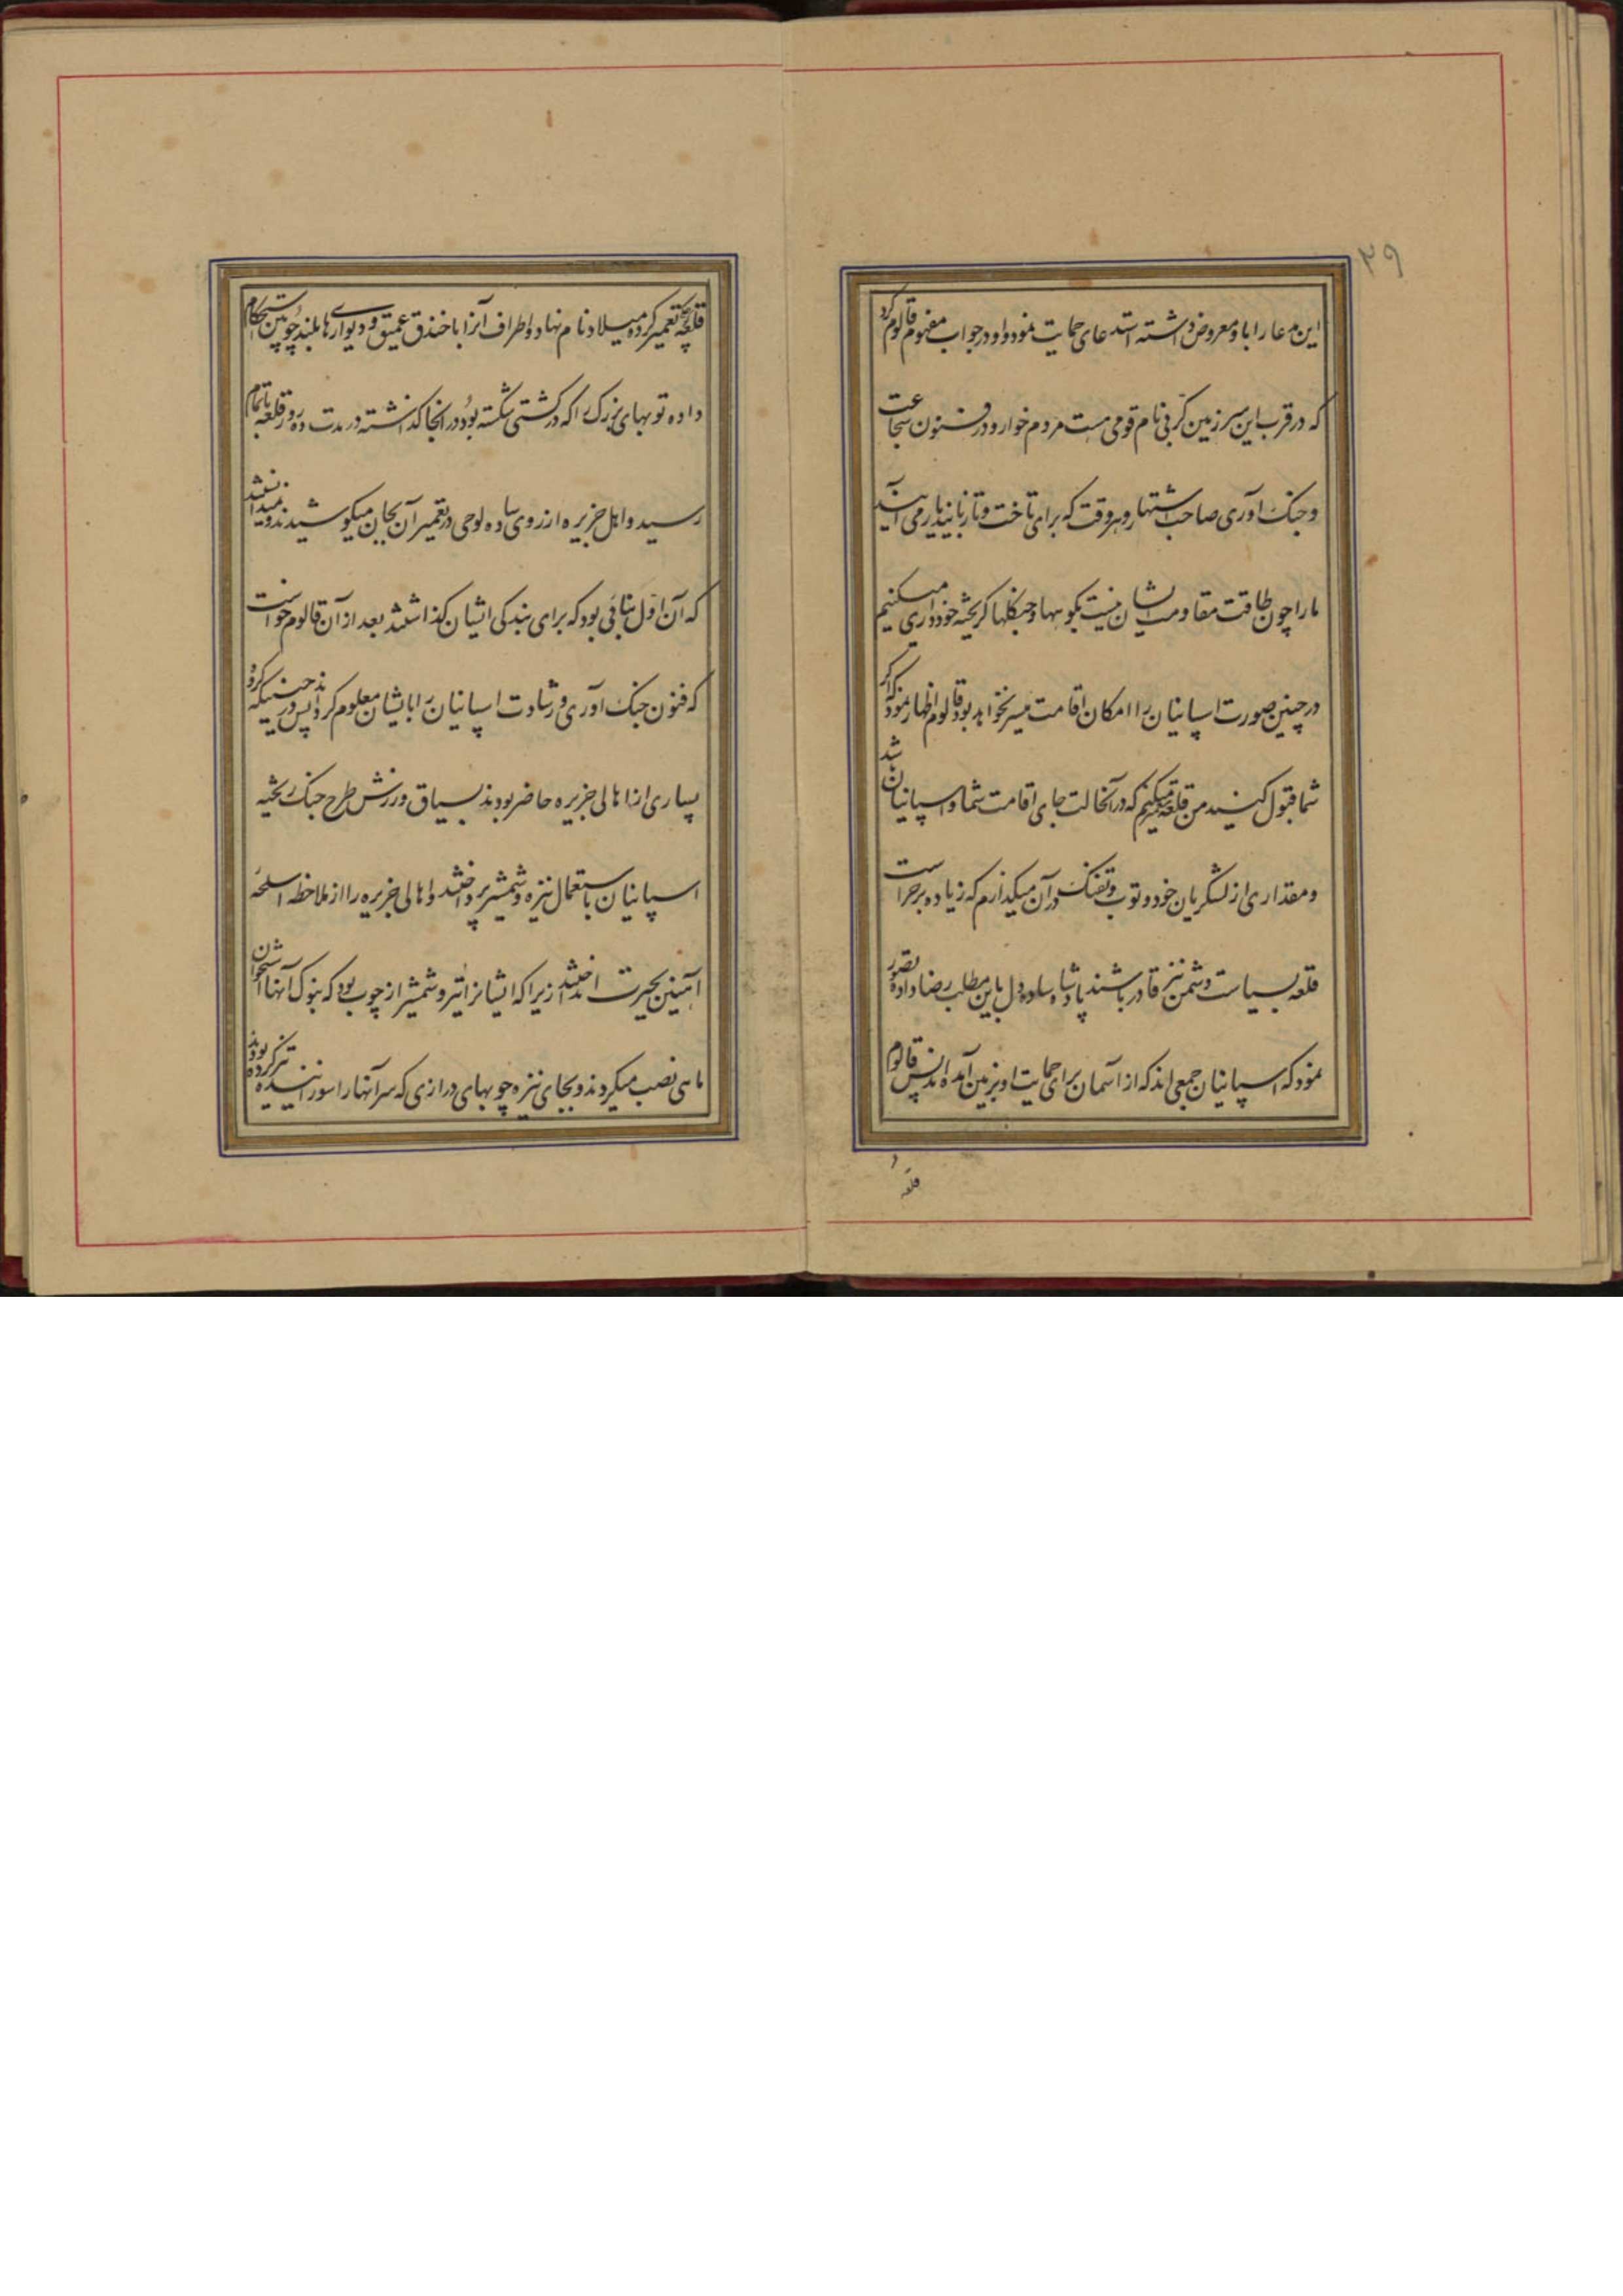 ۳۹
این مدعا را باو معروض داشته استدعای حمایت نمود و او در جواب مفهوم قالوم کرد
که در قرب این سرزمین کربی نام قومی هست مردم خوار و در فنون شجاعت
و جنک آوری صاحب اشتهار و هر وقت که برای تاخت و تاز باینددیار می آیند
ما را چون طاقت مقاومت ایشان نیست بکوهها و جنکلها کریخته خودداری میکنیم
در چنین صورت اسپانیان را امکان اقامت میسر نخواهد بود قالوم اظهار نمود که اکر
شما قبول کنید من قلعه تعمیر میکنم که در آنحالت جای اقامت شما و اسپانیان باشد
و مقداری از لشکریان خود و توپ و تفنک در آن میکذارم که زیاده بر حراست
قلعه بسیاست دشمن نیز قادر باشند پادشاه ساده دل باین مطلب رضا داده تصور
نمود که اسپانیان جمعی اند که از آسمان برای حمایت او بزمین آمده اند پس قالوم
قلعه
قلعه تعمیر کرده میلاد نام نهاد و اطراف آنرا با خندق عمیق و دیوارهای بلند چوبین استحکام
داده توبهای بزرک را که در کشتی شکسته بود در آنجا کذاشته در مدت ده روز قلعه باتمام
رسید و اهل جزیره از روی ساده لوحی در تعمیر آن بجان میکوشیدند و نمیدانستند
که آن اول بنائی بود که برای بندکی ایشان کذاشتند بعد از آن قالوم خواست
که فنون جنک آوری و رشادت اسپانیان را بایشان معلوم کرداند پس در حینیکه کروه
بسیاری از اهالی جزیره حاضر بودند بسیاق ورزش طرح جنک ریخته
اسپانیان باستعمال نیزه و شمشیر پرداختند و اهالی جزیره را از ملاحظه اسلحه
آهنین بحیرت انداختند زیرا که ایشانرا تیر و شمشیر از چوب بود که بنوک آنها استخوان
ماهی نصب میکردند و بجای نیزه چوبهای درازی که سر آنها را سوزانیده تیز کرده بودند